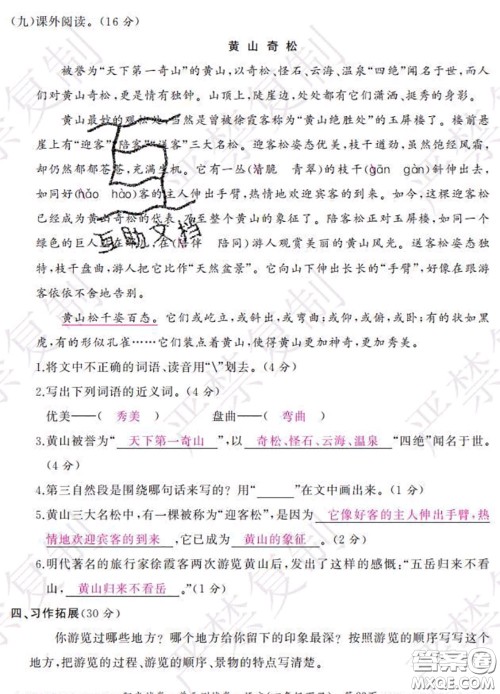 (九)课外阅读。(16分)
黄山奇松
被誉为“天下第一奇山”的黄山，以奇松、怪石、云海、温泉“四绝”闻名于世，而人
们对黄山奇松，更是情有独钟。山顶上，陡崖边，处处都有它们潇洒、挺秀的身影。
黄山最妙的观松处，当然是曾被徐霞客称为“黄山绝胜处”的玉屏楼了。楼前悬
崖上有“迎客”“陪客”“送客”三大名松。迎客松姿态优美，枝干遒劲，虽然饱经风霜，
却仍然郁郁苍苍，充满生机。它有一丛(清脆 青翠)的枝干(gān gàn)斜伸出去，
如同好(hǎo hào)客的主人伸出手臂，热情地欢迎宾客的到来。如今，这棵迎客松
已经成为黄山奇松的代表，乃至整个黄山的象征了。陪客松正对玉屏楼，如同一个
绿色的巨人站在那儿，在(陪伴 陪同)游人观赏美丽的黄山风光。送客松姿态独
特，枝干盘曲，游人把它比作“天然盆景”。它向山下伸出长长的“手臂”，好像在跟游
客依依不舍地告别。
黄山松千姿百态。它们或屹立，或斜出，或弯曲；或仰，或俯，或卧；有的状如黑
虎，有的形似孔雀……它们装点着黄山，使得黄山更加神奇，更加秀美。
1.将文中不正确的词语、读音用“\”划去。(4分)
2.写出下列词语的近义词。(4分)
优美——( 秀美 ) 盘曲——( 弯曲 )
3.黄山被誉为“ 天下第一奇山 ”，以 奇松、怪石、云海、温泉 “四绝”闻名于世。
(4分)
4.第三自然段是围绕哪句话来写的？用“______”在文中画出来。(1分)
5.黄山三大名松中，有一棵被称为“迎客松”，是因为 它像好客的主人伸出手臂，热
情地欢迎宾客的到来 ，它已成为 黄山的象征 。(2分)
6.明代著名的旅行家徐霞客两次游览黄山后，发出了这样的感慨：“五岳归来不看
山， 黄山归来不看岳 。”(1分)
四、习作拓展(30分)
你游览过哪些地方？哪个地方给你留下的印象最深？按照游览的顺序写写这个
地方，把游览的过程、游览顺序、景物的特点写清楚。
严禁复制
互助文档